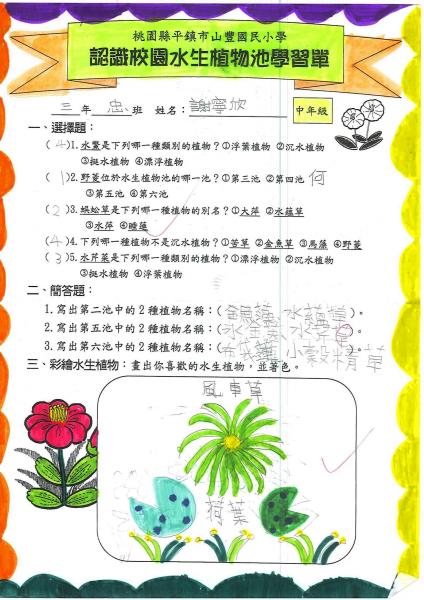 桃園縣平鎮市山豐國民小學
認識校園水生植物池學習單
三年忠班 姓名：謝寧欣 中年級
一、選擇題：
(4)1.水鱉是下列哪一種類別的植物？①浮葉植物 ②沉水植物
③挺水植物 ④漂浮植物
(1)2.野菱位於水生植物池的哪一池？①第三池 ②第四池 何
③第五池 ④第六池
(2)3.蜈蚣草是下列哪一種植物的別名？①大萍 ②水蘊草
③水萍 ④睡蓮
(4)4.下列哪一種植物不是沉水植物？①苦草 ②金魚草 ③馬藻 ④野菱
(3)5.水芹菜是下列哪一種類別的植物？①漂浮植物 ②沉水植物
③挺水植物 ④浮葉植物
二、簡答題：
1.寫出第二池中的2種植物名稱：(銀蓮、水蘊草)。
2.寫出第五池中的2種植物名稱：(水金英、水芹菜)。
3.寫出第六池中的2種植物名稱：(布袋蓮、小穀精草
三、彩繪水生植物：畫出你喜歡的水生植物，並著色。
風車草
荷葉